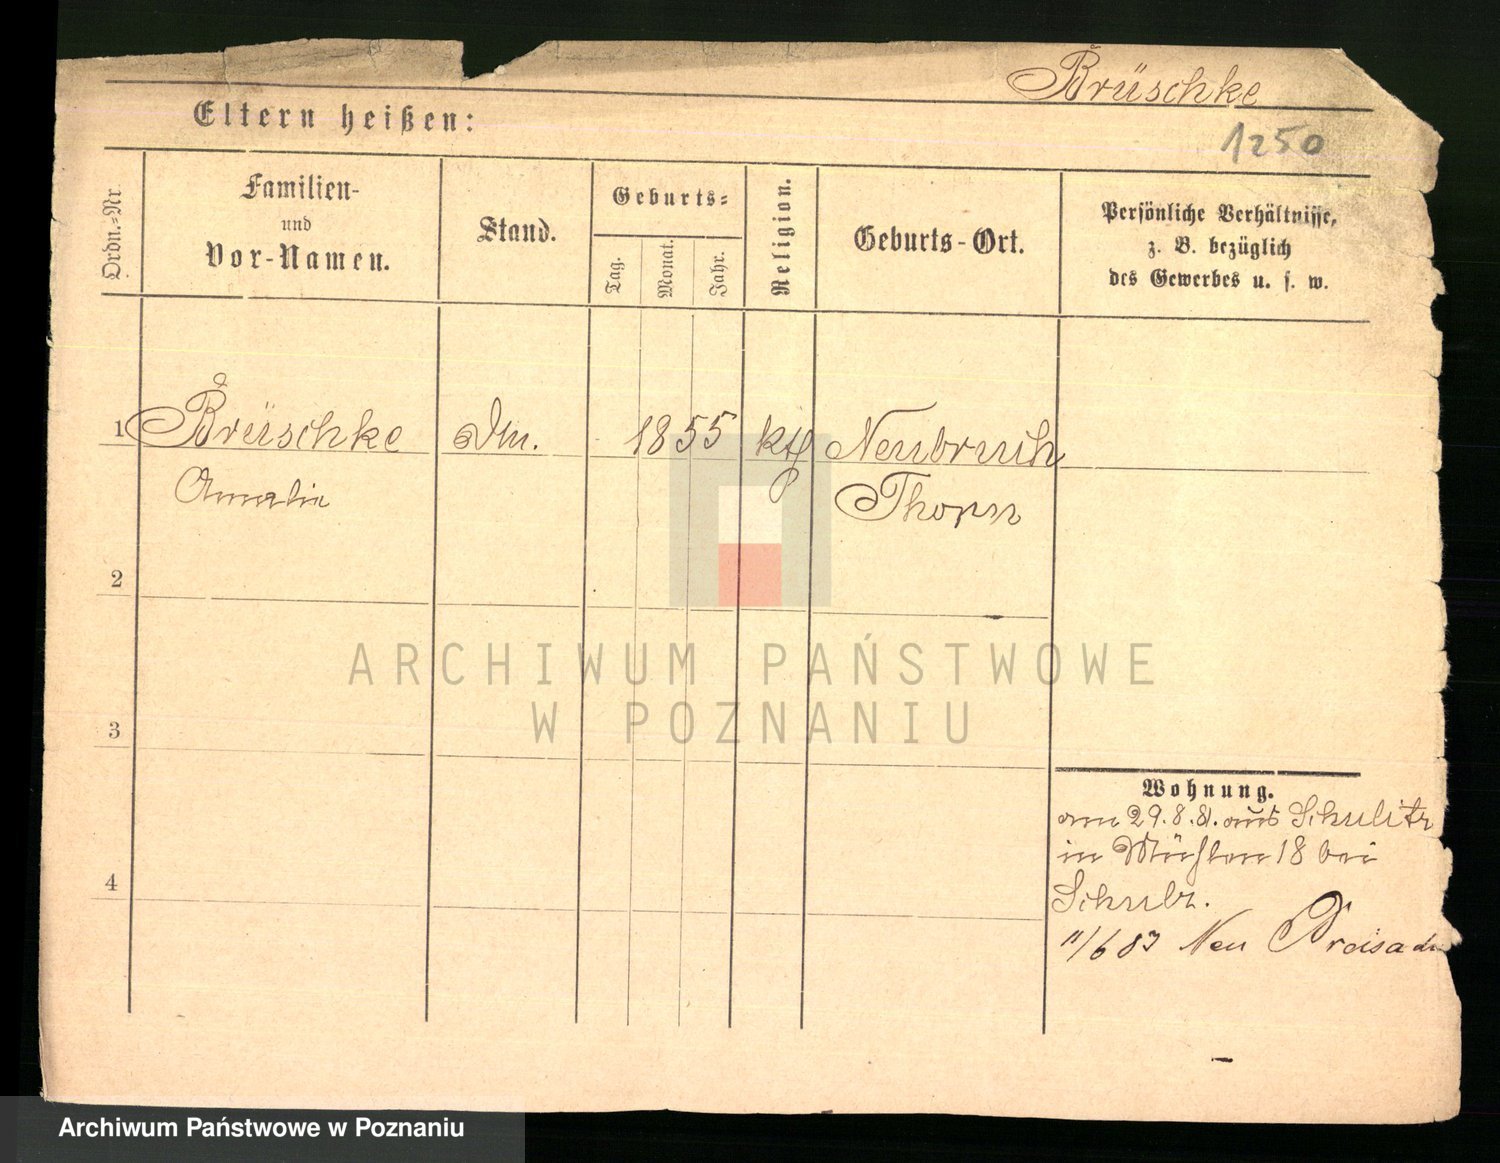 Brüschke
Eltern heißen:
1250
Ordn.-Nr.
Familien-
und
Vor-Namen.
Stand.
Geburts-
Tag.
Monat.
Jahr.
Religion.
Geburts-Ort.
Persönliche Verhältnisse,
z. B. bezüglich
des Gewerbes u. s. w.
1 Brüschke 1855 kth Neubruch
Amalie Thorn
2
3
4
ARCHIWUM PAŃSTWOWE
W POZNANIU
Wohnung.
am 29.8.81. aus Schulitz
in 18 bei
Schubz.
11/6 83 Neu
Archiwum Państwowe w Poznaniu